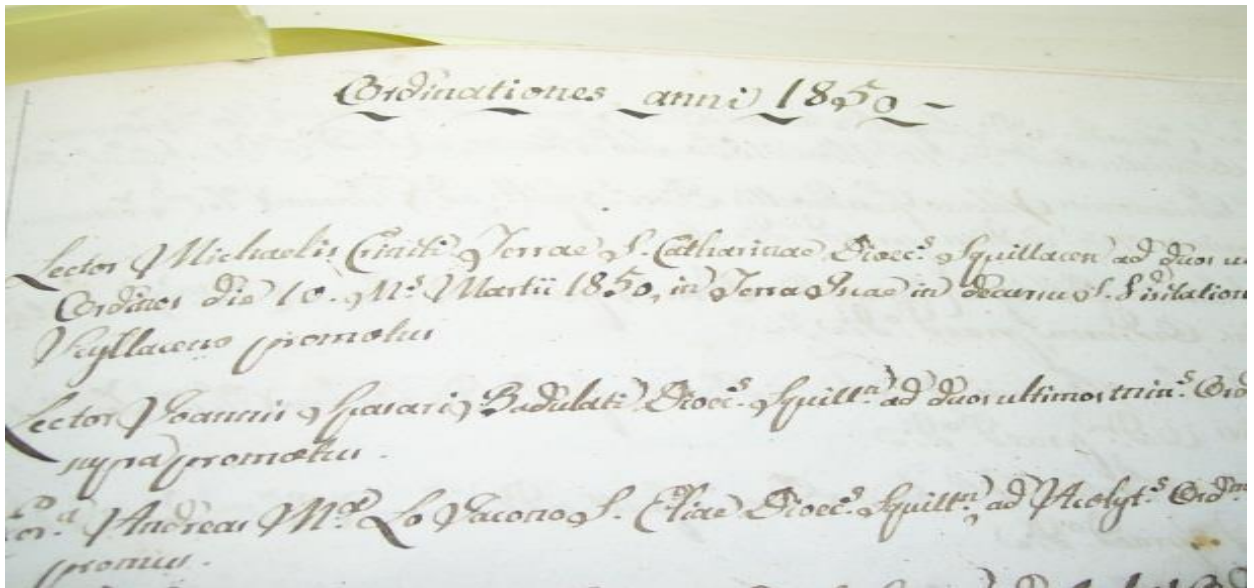 Ordinationes anni 1850 -
Lector Michaelis Criniti Terrae S. Catharinae Dioec.s Squillacen ad duos
Ordines die 10. M.s Martii 1850, in Terra in decursu S. Visitation
Scyllaceno promotus
Lector Joannis Spasari Badulati Dioec.s Squill.n ad duos ultimos min.s Ord
supra promotus.
Andreas M.a Lo Iacono S. Eliae Dioec.s Squill.n ad Acolyt.s Ord.m
promus.